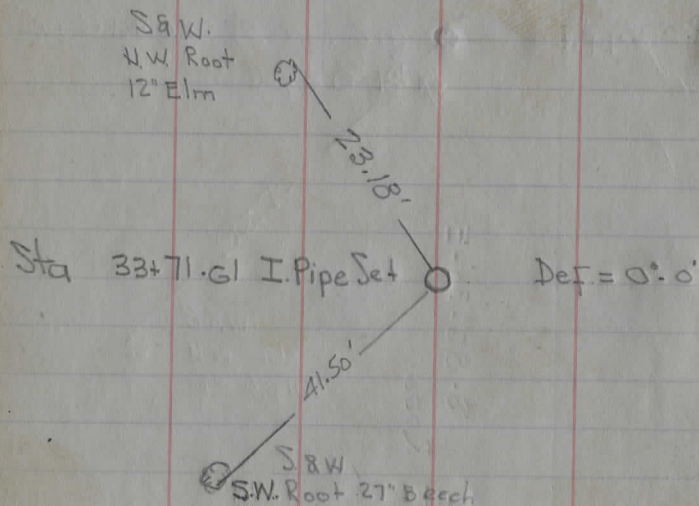 S & W.
N.W. Root
12" Elm
23.18'
Sta 33+71.61 I. Pipe Set Def. = 0°-0'
41.50'
S & W
S.W. Root 27" Beech